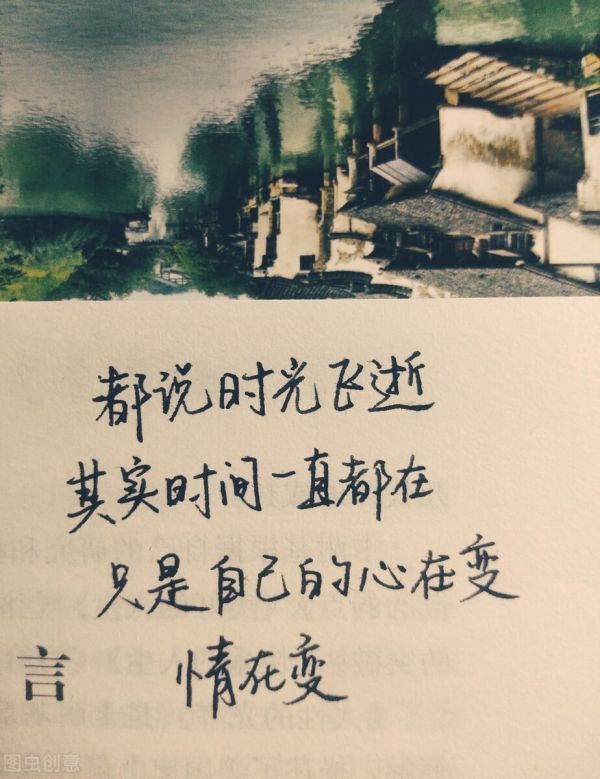 都说时光飞逝
其实时间一直都在
只是自己的心在变
情在变
言
图虫创意